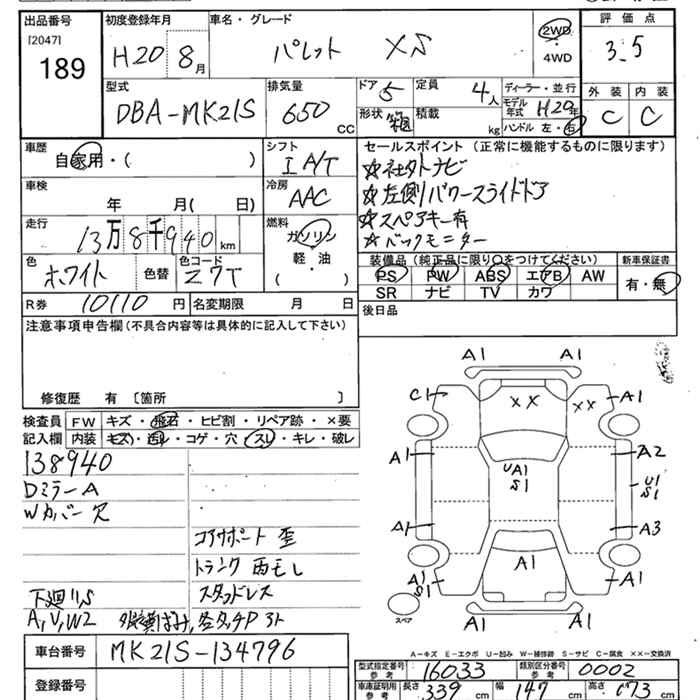 出品番号
[2047]
189
初度登録年月
H20 8月
車名・グレード
パレット XS
2WD
4WD
評価点
3.5
外装 内装
C C
型式
DBA-MK21S
排気量
650 CC
ドア 5
形状 箱
定員 4人
積載 kg
ディーラー・並行
モデル年式 H20年
ハンドル 左・右
車歴
自家用・( )
シフト
I A/T
セールスポイント (正常に機能するものに限ります)
☆社外ナビ
☆左側パワースライドドア
☆スペアキー有
☆バックモニター
車検
年 月( 日)
冷房
AAC
走行
13万8千940 km
燃料
ガソリン
軽・油
( )
色
ホワイト
色替
色コード
Z7T
装備品 (純正品に限り○をつけてください)
PS PW ABS エアB AW
SR ナビ TV カワ
新車保証書
有・無
R券 10110円
名変期限 月 日
後日品
注意事項申告欄 (不具合内容等は具体的に記入して下さい)
修復歴 有 〔箇所 〕
検査員記入欄
FW キズ・飛石・ヒビ割・リペア跡・×要
内装 キズ・汚レ・コゲ・穴・スレ・キレ・破レ
138940
Dミラー A
Wカバー欠
コアサポート 歪
トランク 雨モレ
下廻りS
スタッドレス
A,U,W2
A1 A1
C1 XX XX A1
A1 UA1 S1 A2
U1 S1
A1 A3
A1 S1 A1 A1
スペア
A1 A1
車台番号 MK21S-134796
登録番号
A-キズ E-エクボ U-凹み W-補修跡 S-サビ C-腐食 XX-交換済
型式指定番号 参考 16033
類別区分番号 参考 0002
車庫証明用 参考 長さ 339 cm 幅 147 cm 高さ 173 cm